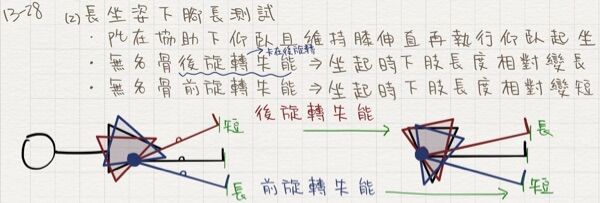 13-28 (2) 長坐姿下腳長測試
· pt在協助下仰臥且維持膝伸直再執行仰臥起坐
卡在後旋轉
· 無名骨後旋轉失能 ⇒ 坐起時下肢長度相對變長
· 無名骨前旋轉失能 ⇒ 坐起時下肢長度相對變短
後旋轉失能
短
長
長
前旋轉失能
短